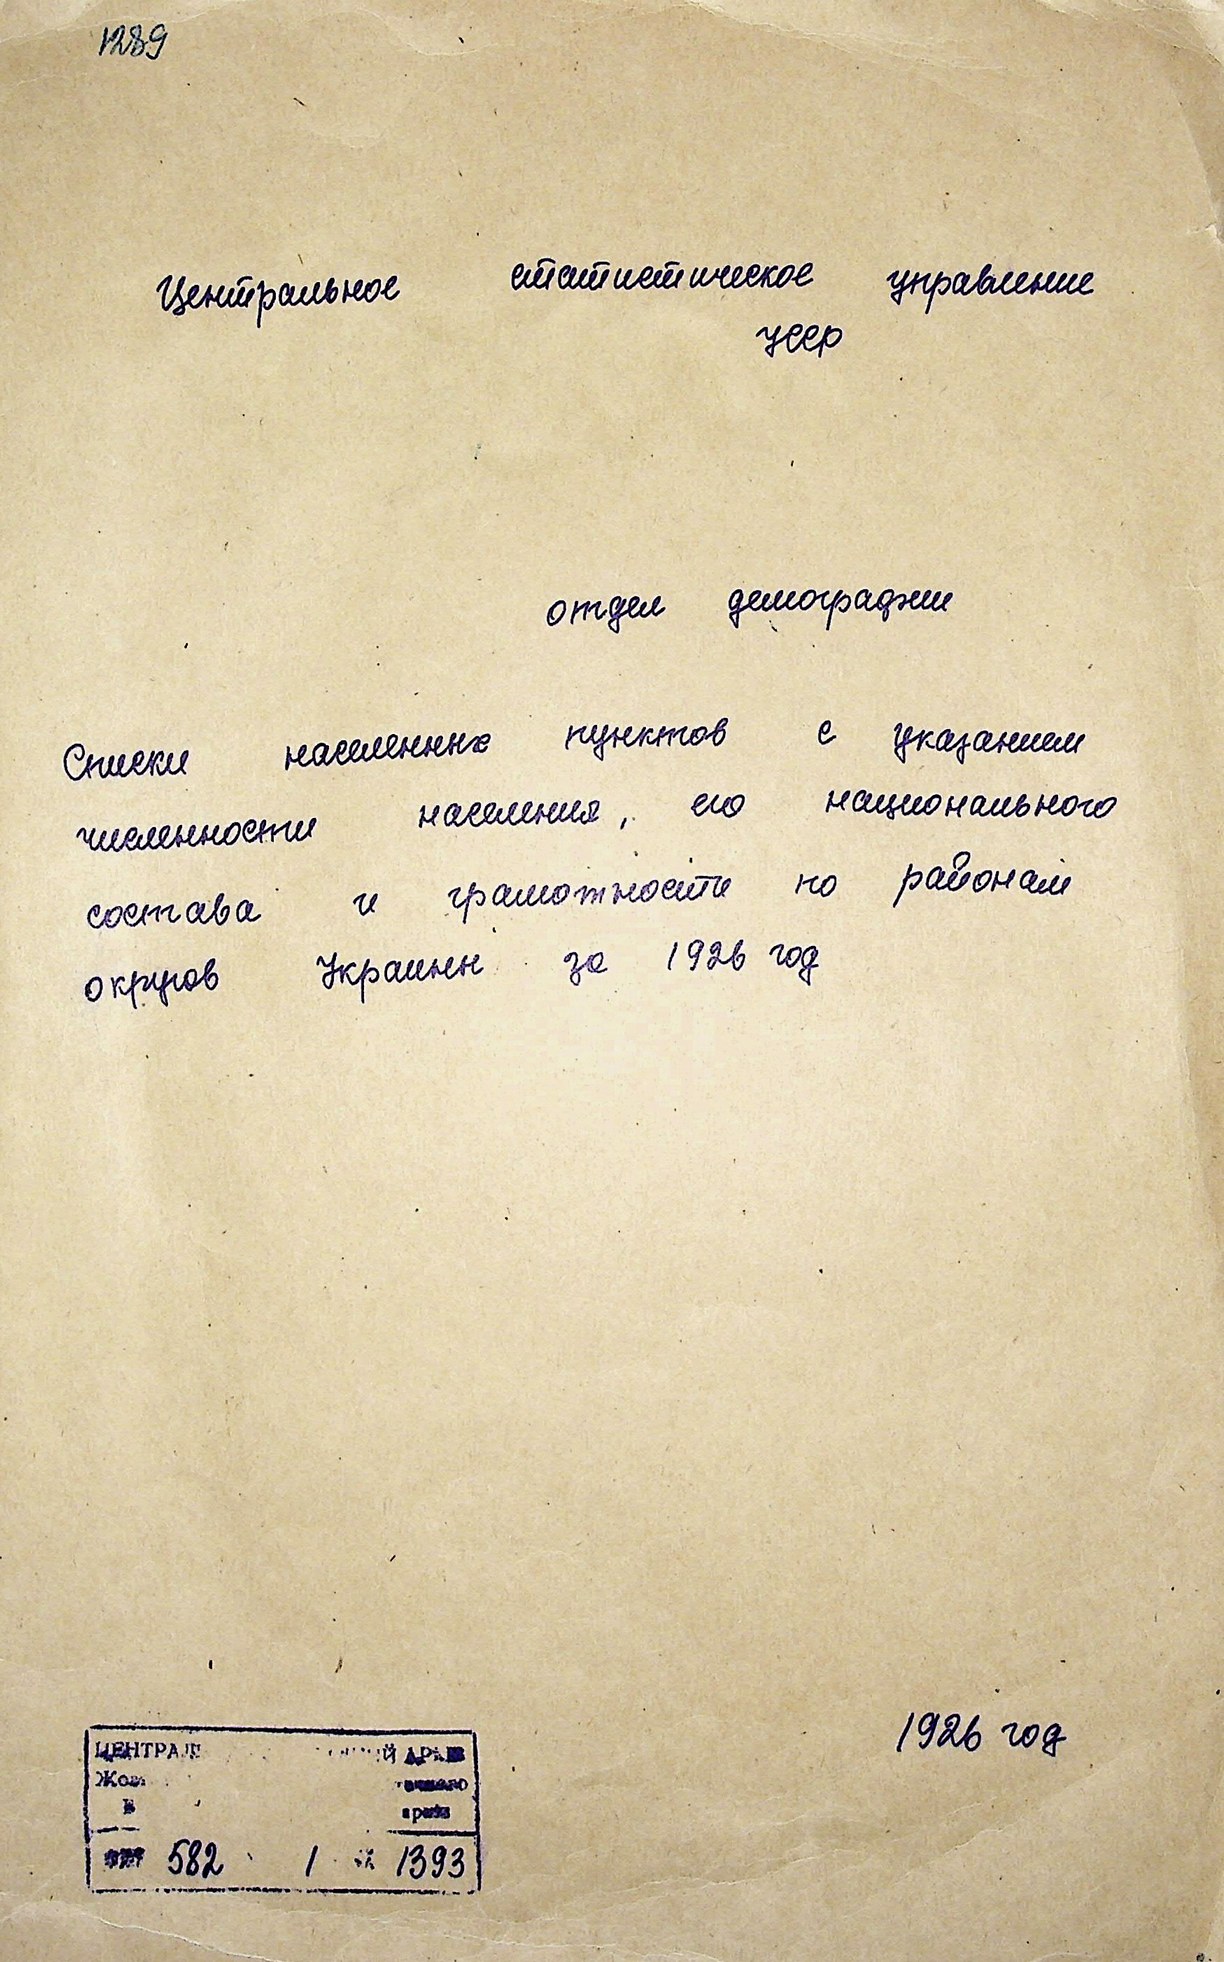 1289
Центральное статистическое управление
УССР
отдел демографии
Списки населенных пунктов с указанием
численности населения, его национального
состава и грамотности по районам
округов Украины за 1926 год
1926 год
АРХІВ
582 1 1393